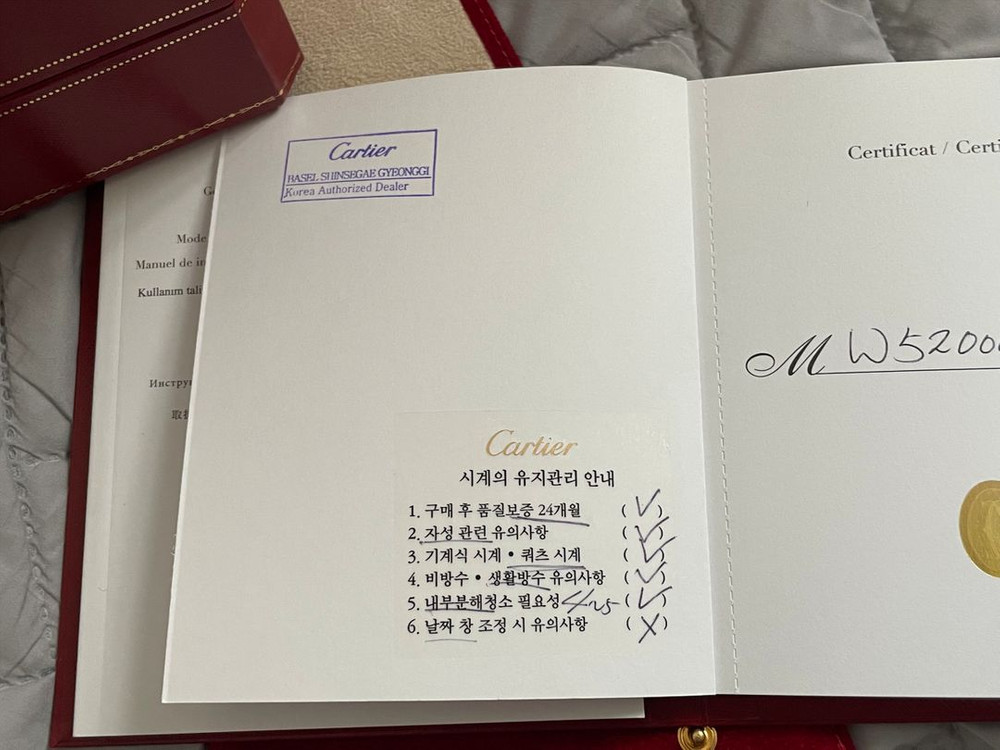 Cartier
BASEL SHINSEGAE GYEONGGI
Korea Authorized Dealer
Mode
Manuel de in
Kullanım tali
Инстру
取扱
Cartier
시계의 유지관리 안내
1. 구매 후 품질보증 24개월 (✓)
2. 자성 관련 유의사항 (✓)
3. 기계식 시계 • 쿼츠 시계 (✓)
4. 비방수 • 생활방수 유의사항 (✓)
5. 내부분해청소 필요성 4~5 (✓)
6. 날짜 창 조정 시 유의사항 (X)
Certificat / Certi
M W5200